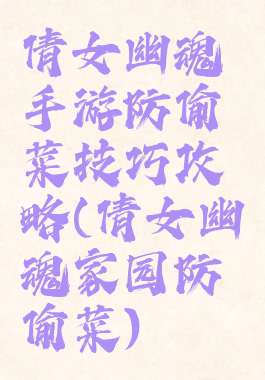 倩女幽魂
手游防偷
菜技巧攻
略(倩女幽
魂家园防
偷菜)